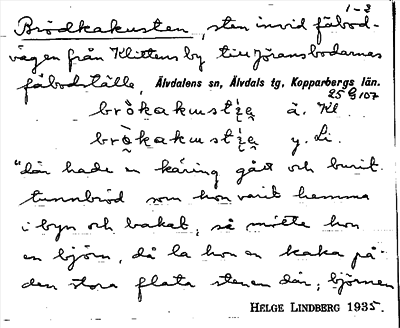 1-3
Brödkakusten, sten invid fäbod-
vägen från Klittens by till Jöransbodarnas
fäbodställe, Älvdalens sn, Älvdals tg, Kopparbergs län.
25 G 107
ä. Kl.
y. Li.
"där hade en käring gått och burit
tunnbröd som hon varit hemma
i byn och bakat, så mötte hon
en björn, då la hon en kaka på
den stora flata stenen där; björnen
HELGE LINDBERG 1935.